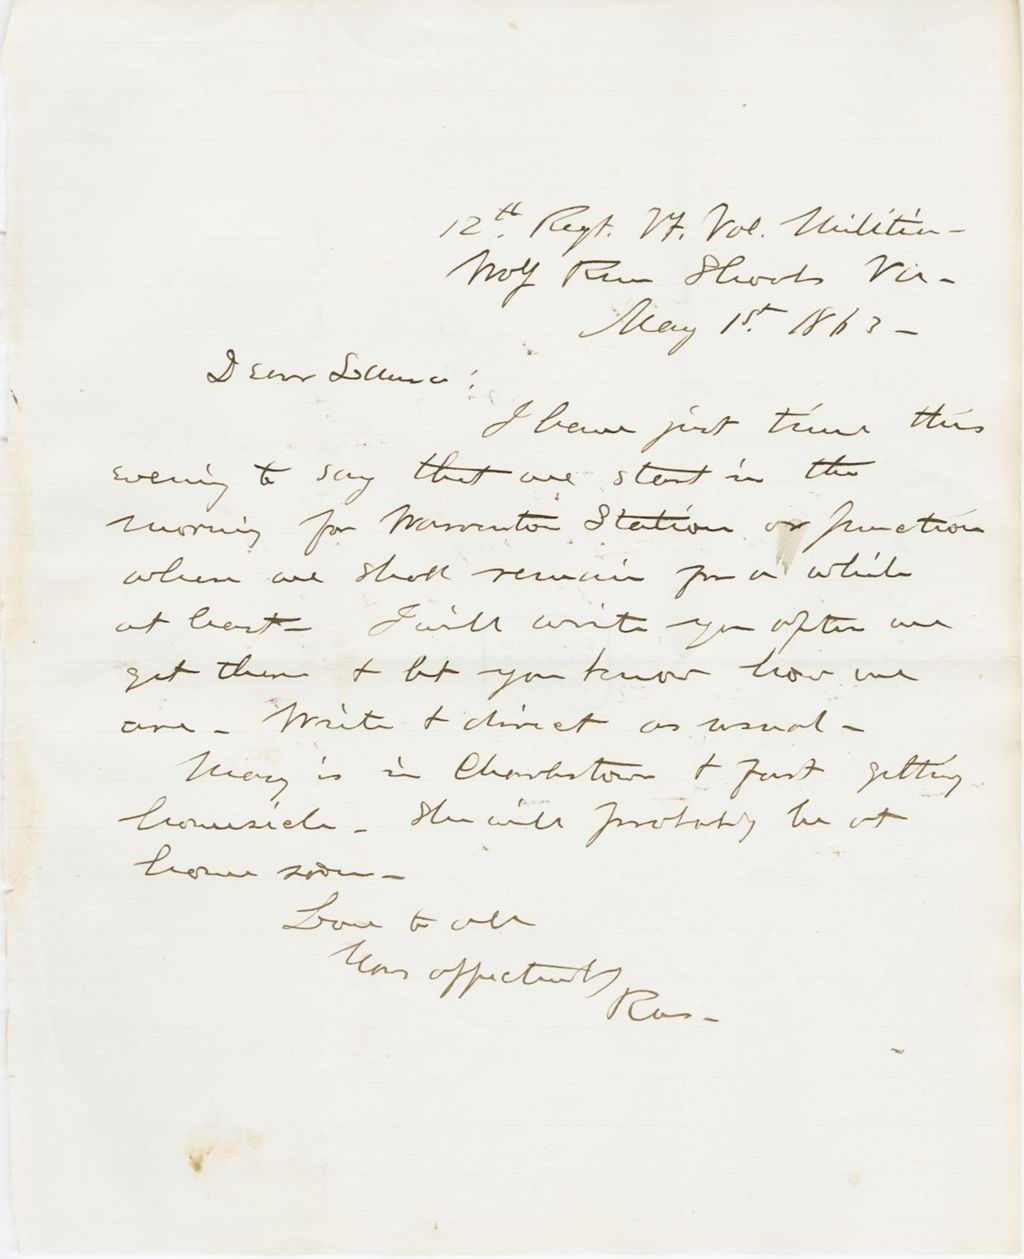 12th. Regt. Vt. Vol. Militia -
Wolf Run Shoals Va -
May 1st. 1863 -
Dear Laura :
I have just time this
evening to say that we start in the
morning for Warrenton Station or Junction
where we shall remain for a while
at least - I will write you after we
get there & let you know how we
are - Write & direct as usual -
Mary is in Charlestown & fast getting
homesick - She will probably be at
home soon -
Love to all
Yours affectionately
Ras -